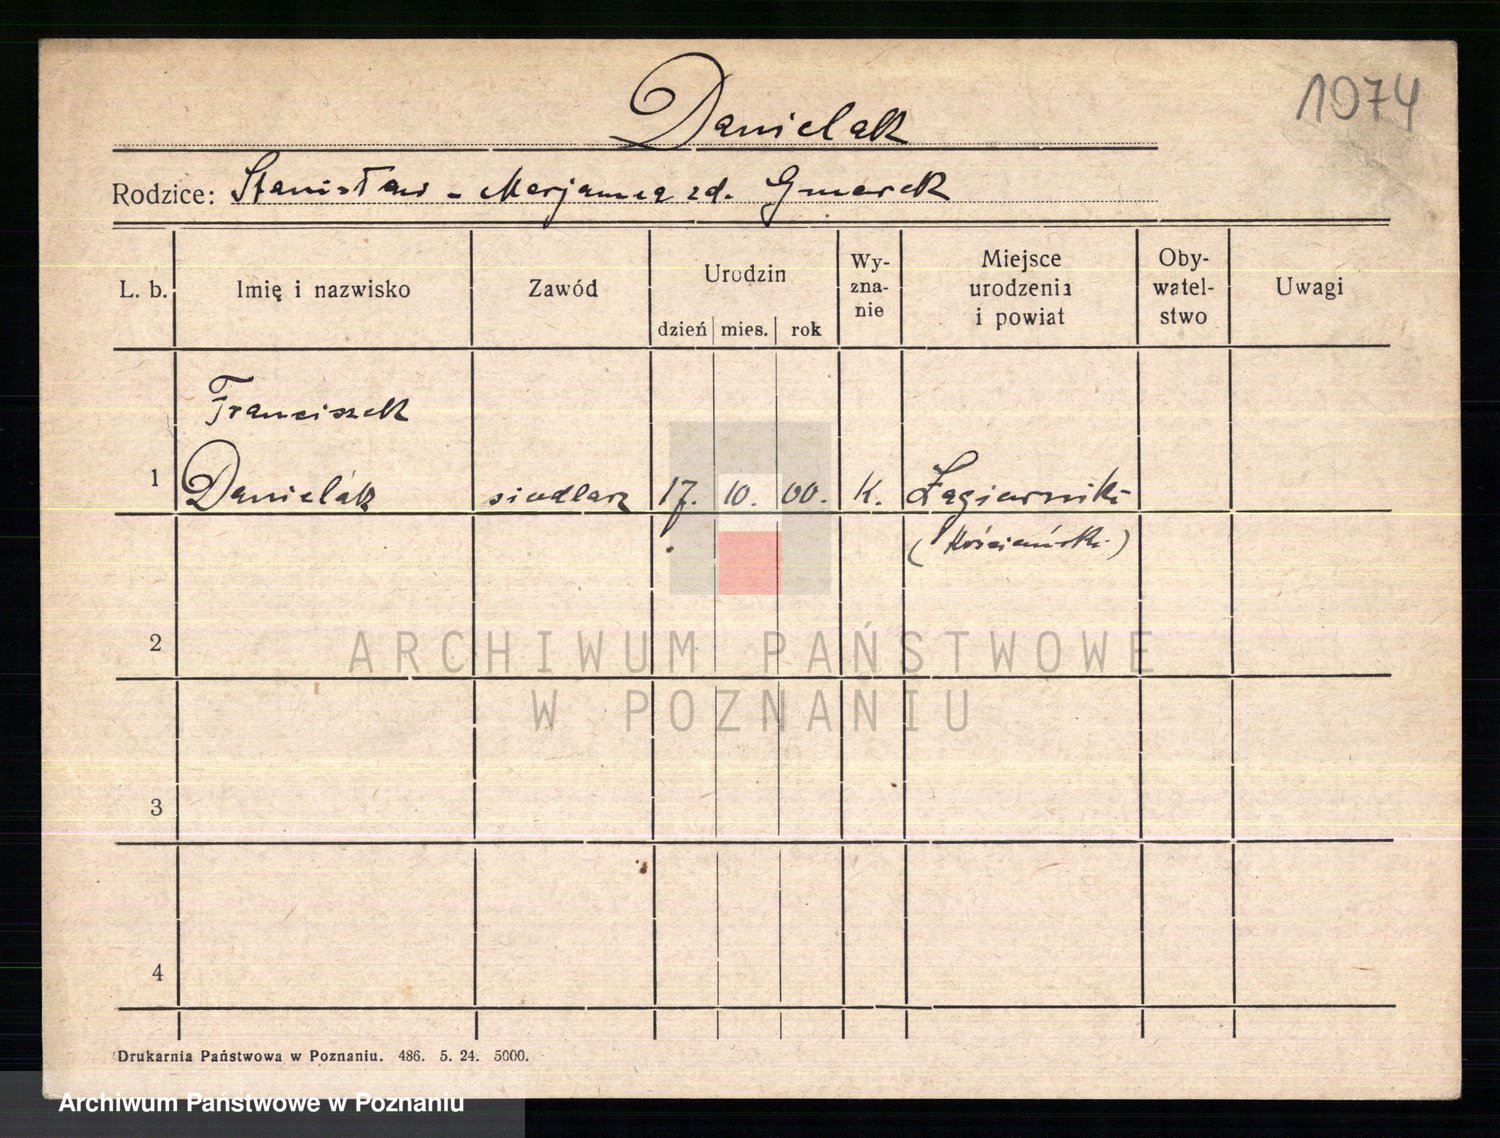 Danielak
1074
Rodzice: Stanisław - Marjanna zd. Gmerek
L. b. Imię i nazwisko Zawód Urodzin Wy-zna-nie Miejsce urodzenia i powiat Oby-watel-stwo Uwagi
dzień mies. rok
Franciszek
1 Danielak siodlarz 17. 10. 00. K.
(Kościański)
2
ARCHIWUM PAŃSTWOWE
W POZNANIU
3
4
Drukarnia Państwowa w Poznaniu. 486. 5. 24. 5000.
Archiwum Państwowe w Poznaniu